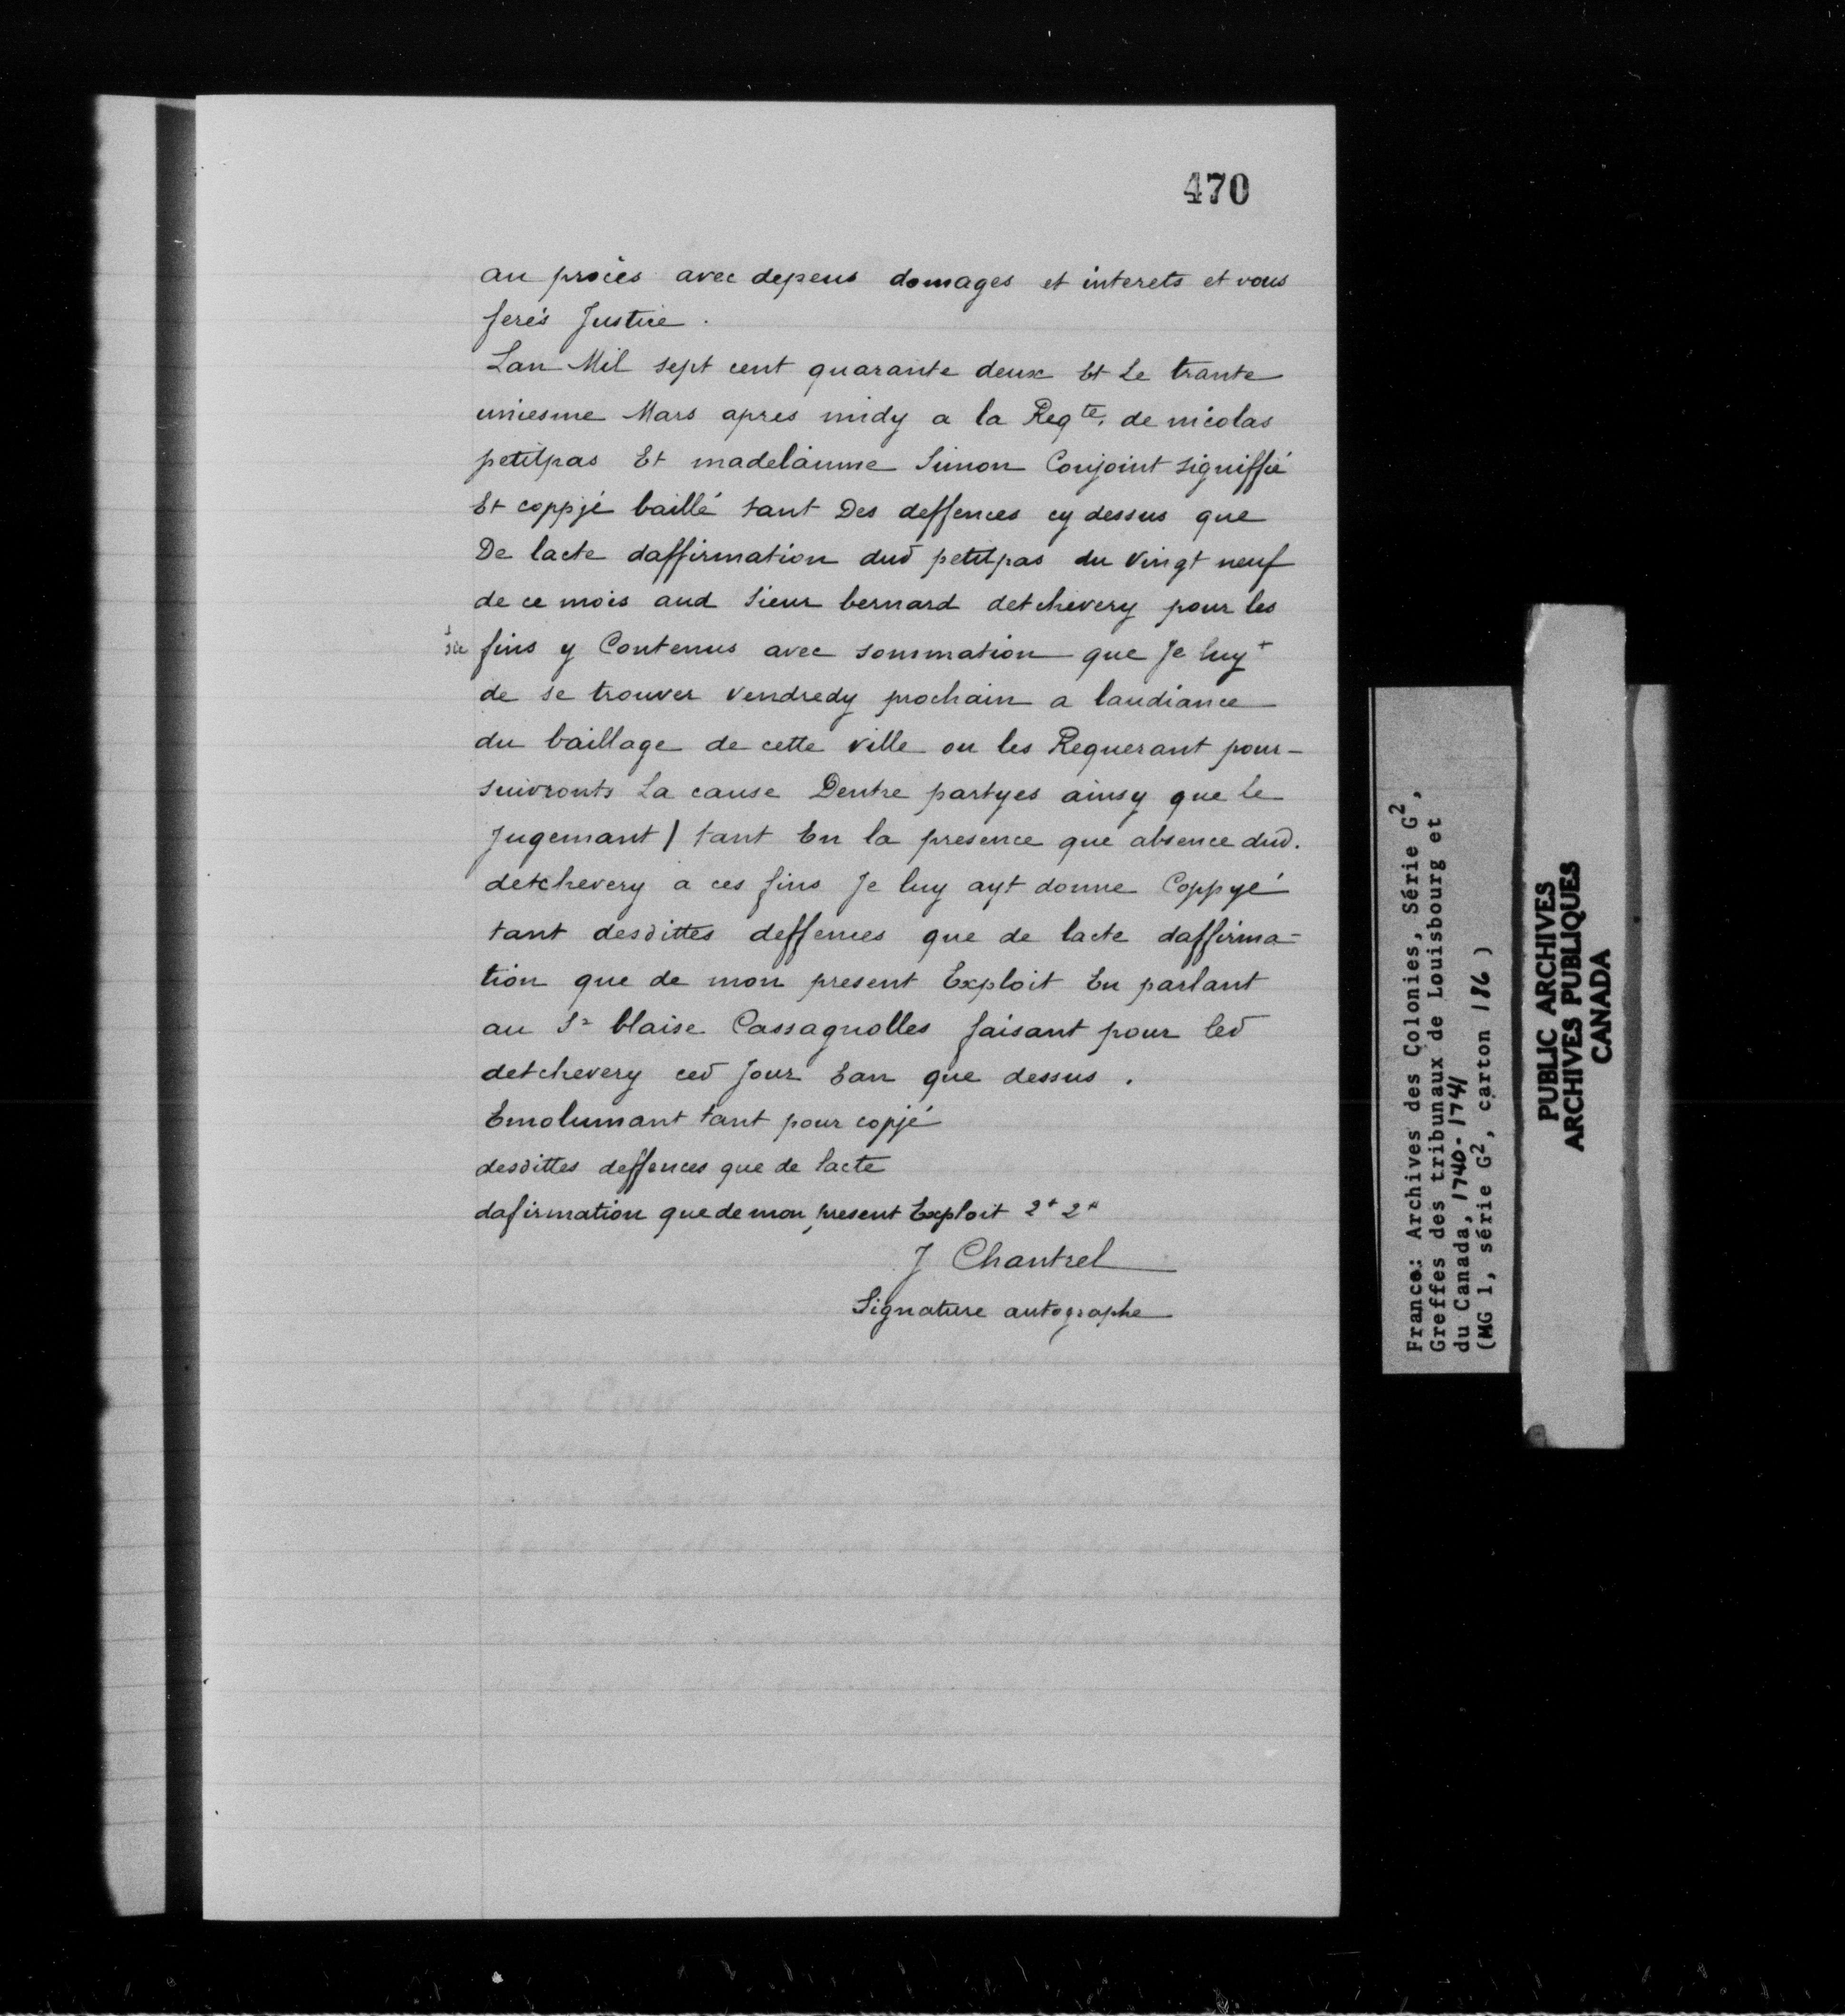 470
au procès avec depens domages et interets et vous
ferés Justice.
Lan Mil sept cent quarante deux Et Le trante
uniesme Mars apres midy a la Reqte. de nicolas
petitpas Et madelainne Simon Conjoint signiffié
Et coppjé baillé tant Des deffences cy dessus que
De lacte daffirmation dud petitpas du Vingt neuf
de ce mois aud Sieur bernard detchevery pour les
+ sic fins y Contenus avec sommation que Je luy +
de se trouver Vendredy prochain a laudiance
du baillage de cette ville ou les Requerant pour-
suivronts La cause Dentre partyes ainsy que le
Jugemant / tant En la presence que absence dud.
detchevery a ces fins Je luy ayt donne Coppyé
tant desdittes deffences que de lacte daffirma-
tion que de mon present Exploit En parlant
au Sr blaise Cassagnolles faisant pour led
detchevery ced Jour Ean que dessus.
Emolumant tant pour copjé
desdittes deffences que de lacte
dafirmation que de mon present Exploit 2+ 2"
J Chantrel
Signature autographe
France: Archives des Colonies, Série G2,
Greffes des tribunaux de Louisbourg et
du Canada, 1740-1741
(MG 1, série G2, carton 186)
PUBLIC ARCHIVES
ARCHIVES PUBLIQUES
CANADA